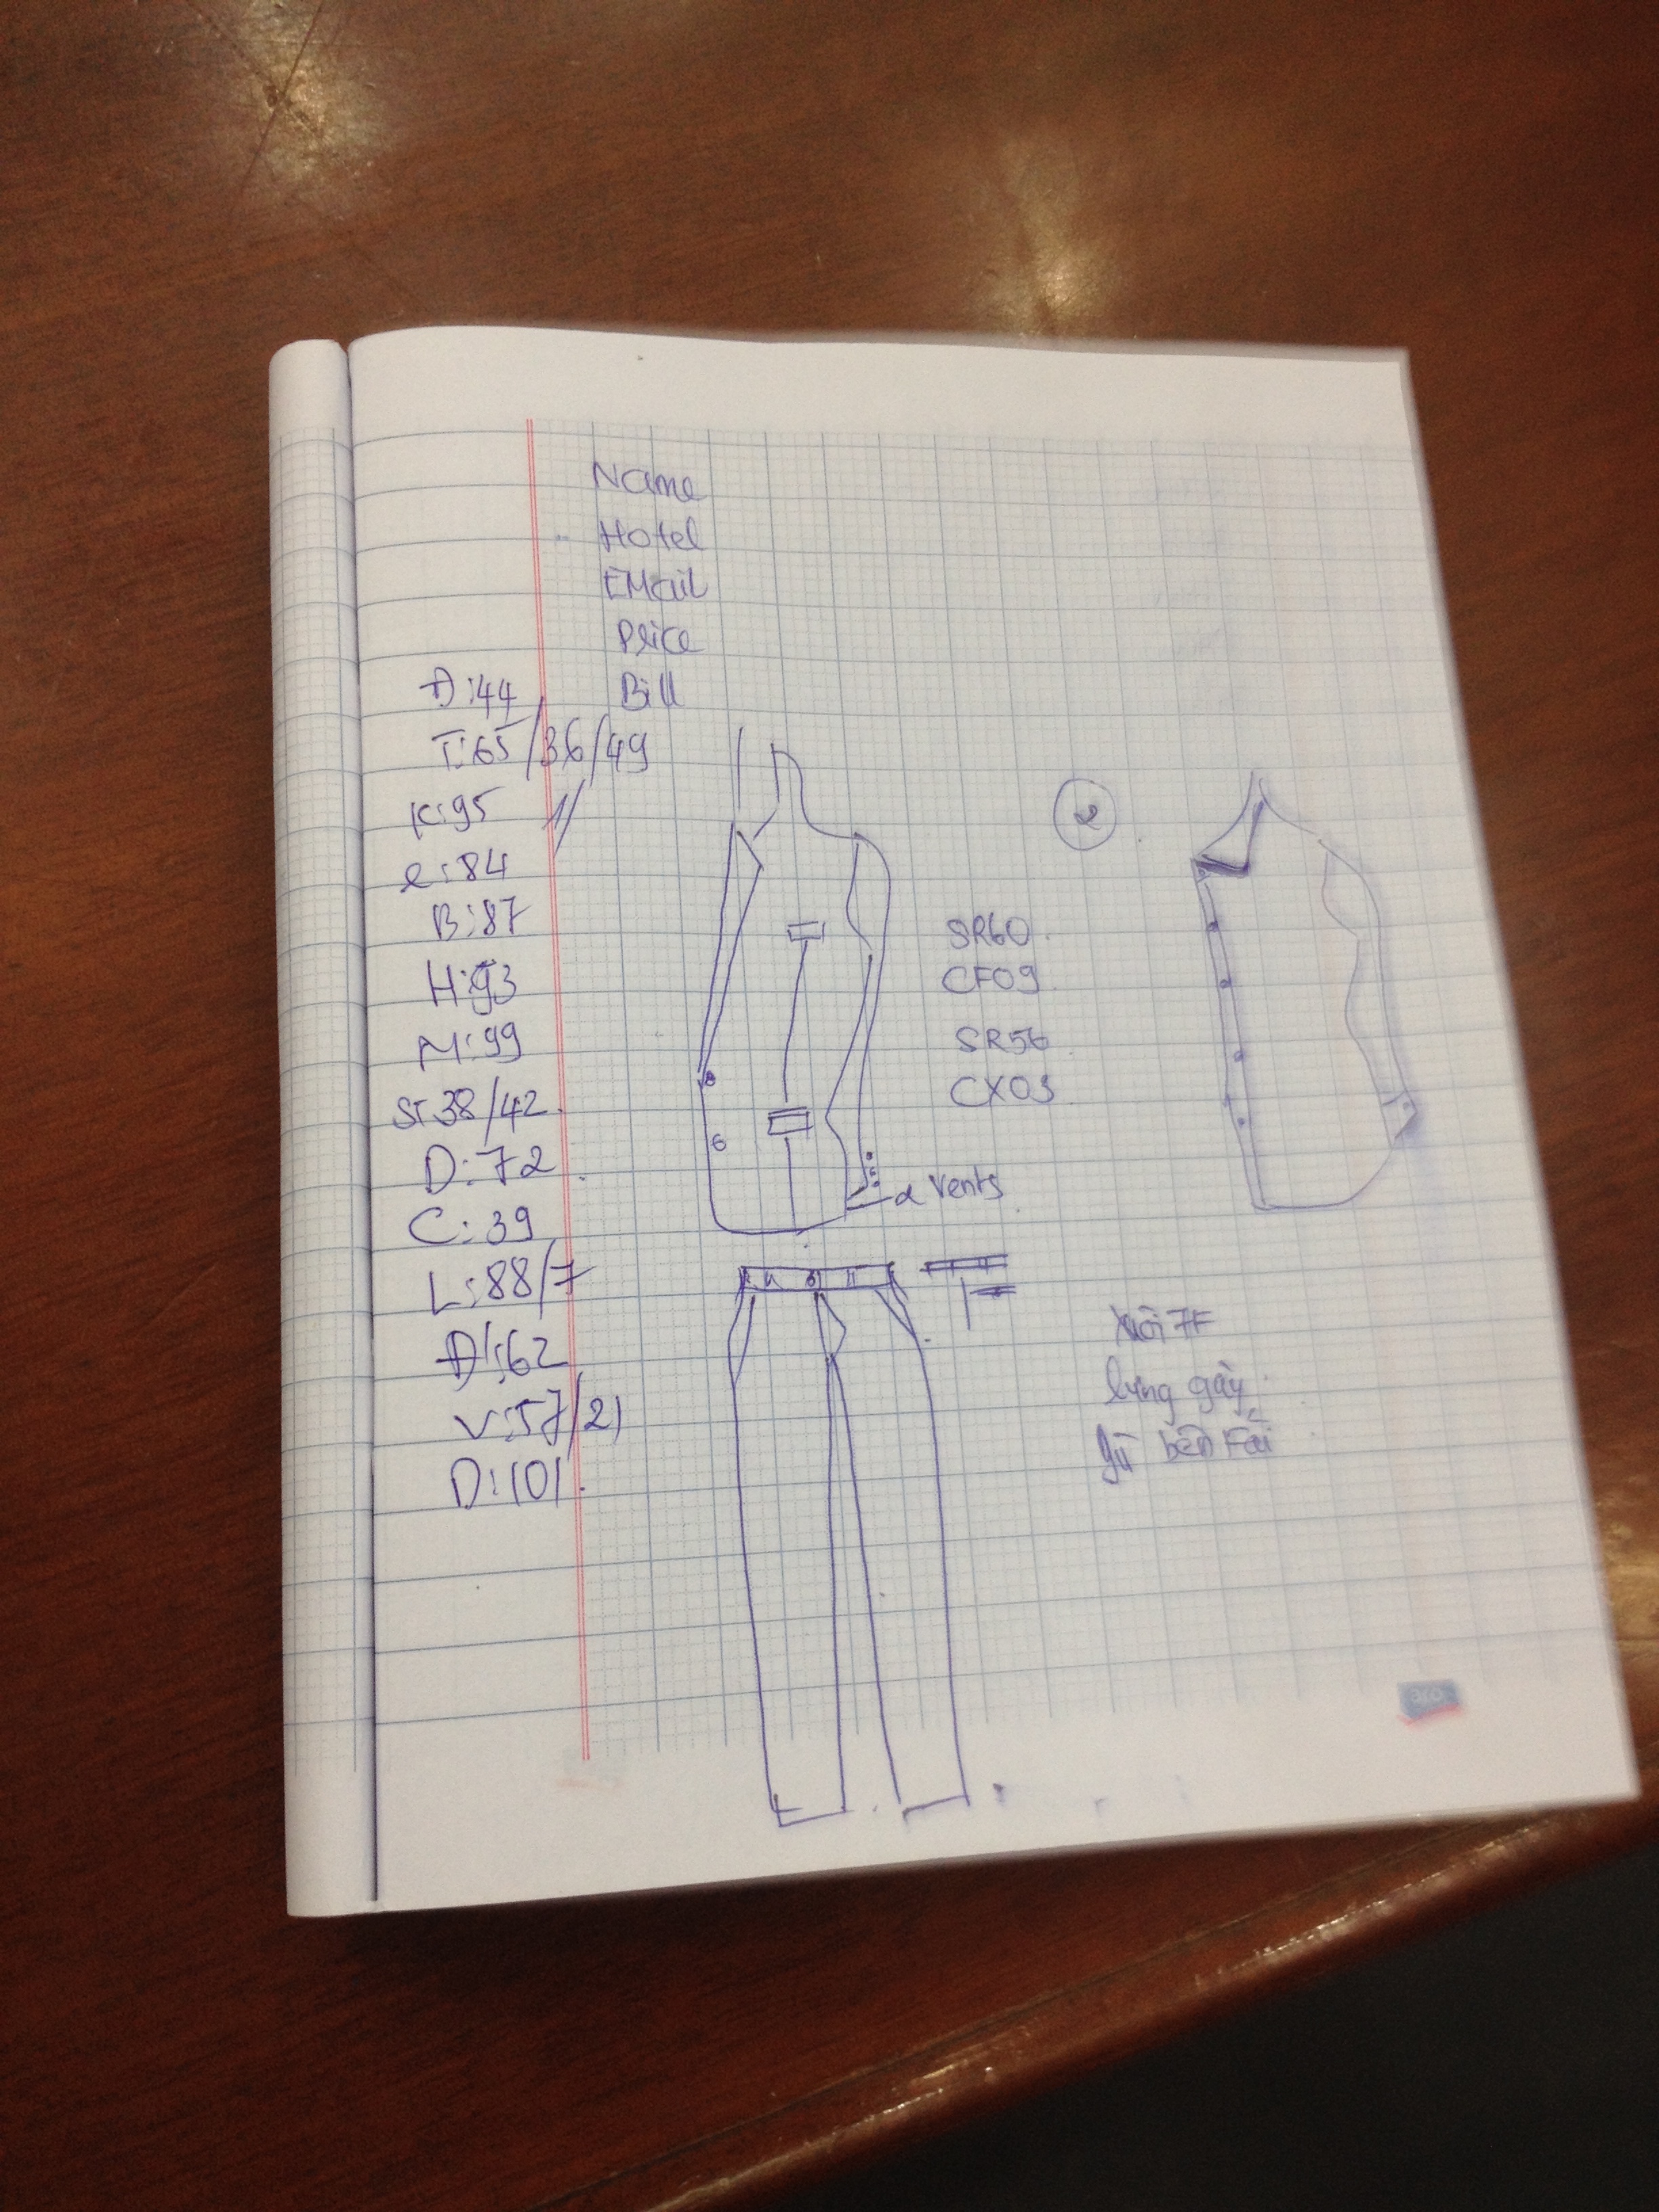 Name
Hotel
EMail
Price
Bill
Đ:44
T:65/36/49
K:95
e:84
B:87
H:93
M:99
ST 38/42
D:72
C:39
L:88/7
Đ:62
V:57/21
D:101
2
SR60
CF09
SR56
CX03
2 vents
Xuôi 7F
lưng gày
gù bên Fải